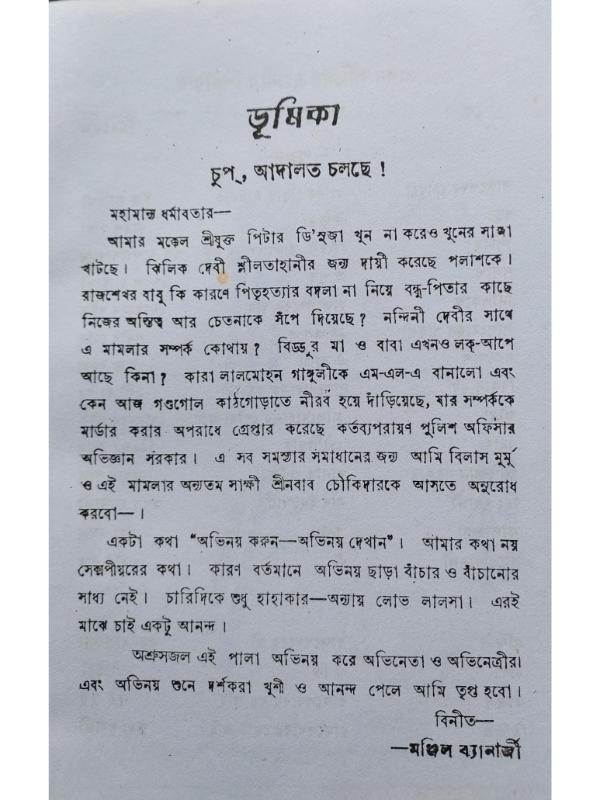 ভূমিকা
চুপ্, আদালত চলছে !
মহামান্য ধর্মাবতার—
আমার মক্কেল শ্রীযুক্ত পিটার ডি'সুজা খুন না করেও খুনের সাজা
খাটছে। ঝিলিক দেবী শ্লীলতাহানীর জন্য দায়ী করেছে পলাশকে।
রাজশেখর বাবু কি কারণে পিতৃহত্যার বদলা না নিয়ে বন্ধু-পিতার কাছে
নিজের অস্তিত্ব আর চেতনাকে সঁপে দিয়েছে? নন্দিনী দেবীর সাথে
এ মামলার সম্পর্ক কোথায়? বিড্ডুর মা ও বাবা এখনও লক্-আপে
আছে কিনা? কারা লালমোহন গাঙ্গুলীকে এম-এল-এ বানালো এবং
কেন আজ গণ্ডগোল কাঠগোড়াতে নীরব হয়ে দাঁড়িয়েছে, যার সম্পর্ককে
মার্ডার করার অপরাধে গ্রেপ্তার করেছে কর্তব্যপরায়ণ পুলিশ অফিসার
অভিজ্ঞান সরকার। এ সব সমস্যার সমাধানের জন্য আমি বিলাস মুর্মু
ও এই মামলার অন্যতম সাক্ষী শ্রীনবাব চৌকিদারকে আসতে অনুরোধ
করবো—।
একটা কথা “অভিনয় করুন—অভিনয় দেখান”। আমার কথা নয়
সেক্সপীয়রের কথা। কারণ বর্তমানে অভিনয় ছাড়া বাঁচার ও বাঁচানোর
সাধ্য নেই। চারিদিকে শুধু হাহাকার—অন্যায় লোভ লালসা। এরই
মাঝে চাই একটু আনন্দ।
অশ্রুসজল এই পালা অভিনয় করে অভিনেতা ও অভিনেত্রীরা
এবং অভিনয় শুনে দর্শকরা খুশী ও আনন্দ পেলে আমি তৃপ্ত হবো।
বিনীত—
—মঞ্জিল ব্যানার্জী